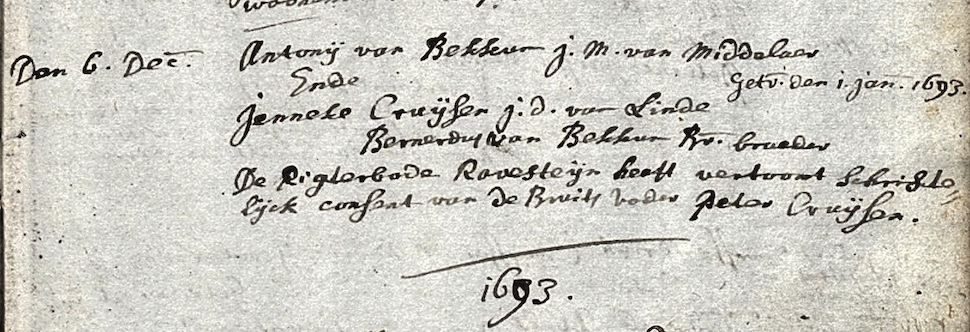 Den 6. Dec. Antonij van Bekkum j. M. van Middelaer
Ende Getr. den 1. jan. 1693.
Jenneke Cruijsen j. d. van Linde
Bernerdus van Bekkum Br. broeder
De Rigterbode Ravesteijn heeft vertoont schrifte-
lijck consent van de Bruits vader Peter Cruijsen.
1693.